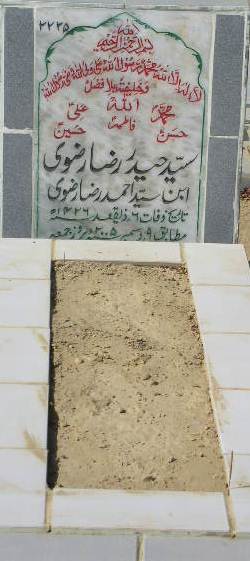 ۲۲۳۵
بسم اللہ الرحمن الرحیم
لا الہ الا اللہ محمد رسول اللہ علی ولی اللہ وصی رسول اللہ
وخلیفتہ بلا فصل
اللہ
محمد علی
فاطمہ
حسن حسین
سید حیدر رضا رضوی
ابن سید احمد رضا رضوی
تاریخ وفات ۶ ذیقعد ۱۴۲۶ھ
مطابق ۹ دسمبر ۲۰۰۵ء بروز جمعہ